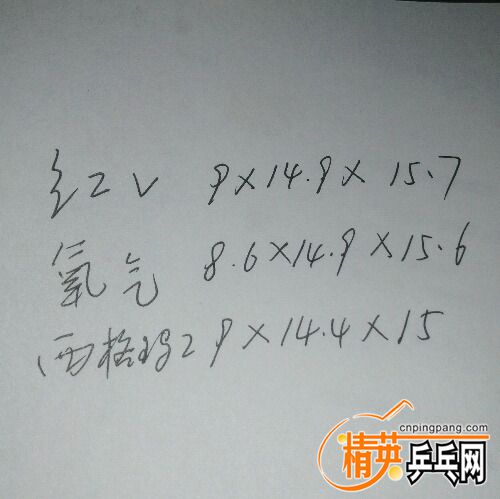 红V 9×14.9×15.7
氧气 8.6×14.9×15.6
西格玛2 9×14.4×15
cnpingpang.com
精英乒乓网